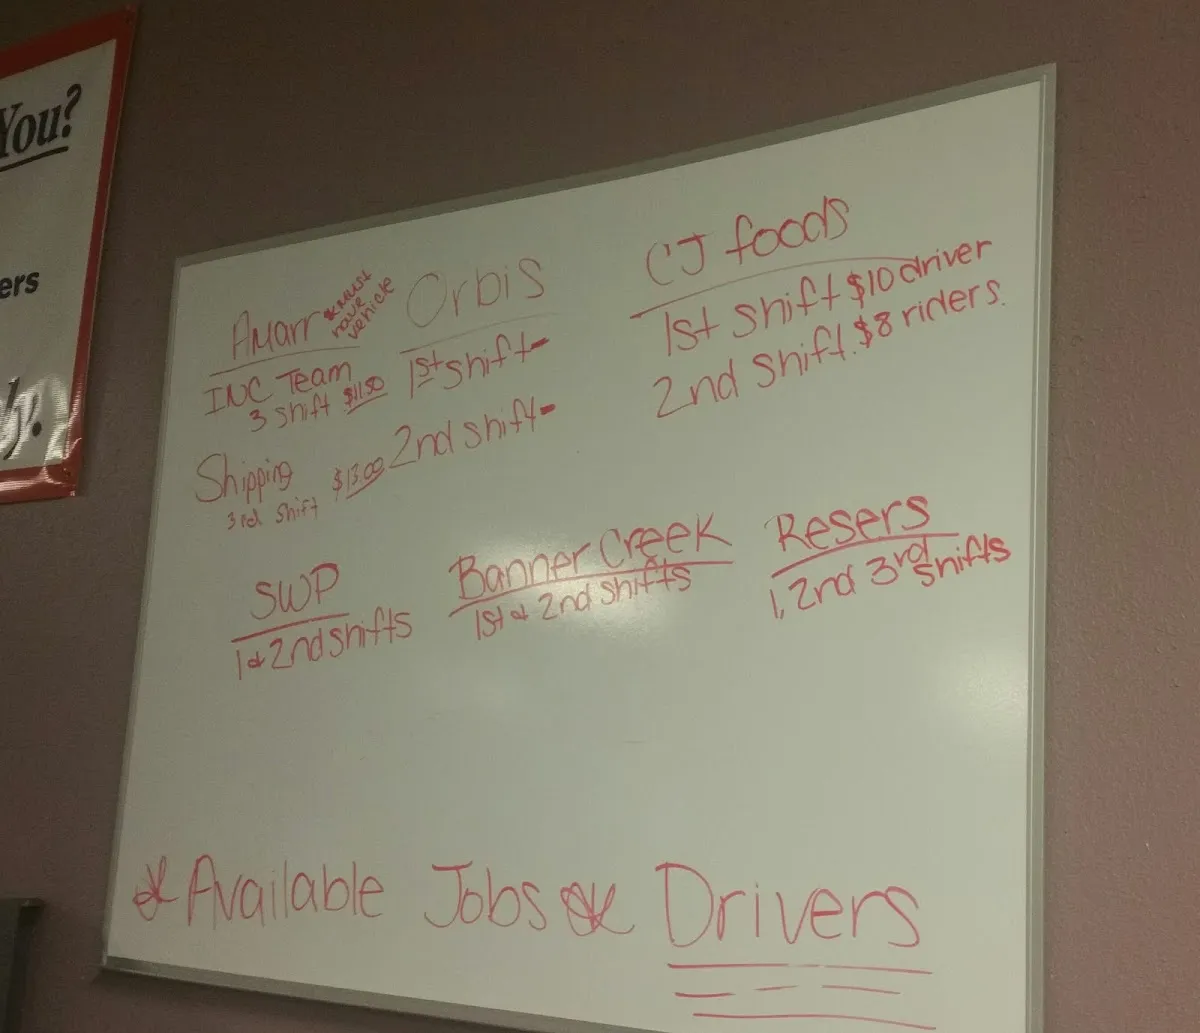 You?
ers
ly.
Amarr *must
have
vehicle
INC Team
3 shift $11.50
Shipping
3rd shift $13.00
Orbis
1st shift-
2nd shift-
CJ foods
1st shift $10 driver
2nd shift. $8 riders.
SWP
1 & 2nd shifts
Banner Creek
1st & 2nd shifts
Resers
1, 2nd 3rd shifts
* Available Jobs * Drivers